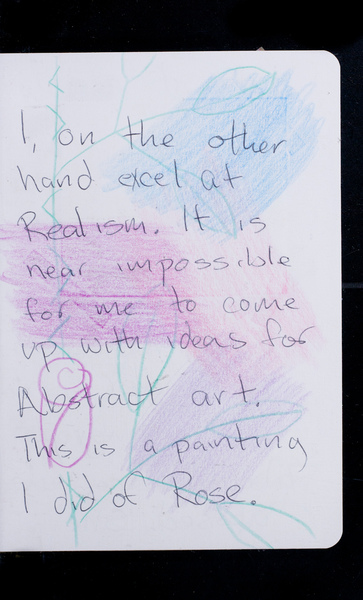 I, on the other
hand excel at
Realism. It is
near impossible
for me to come
up with ideas for
Abstract art.
This is a painting
I did of Rose.